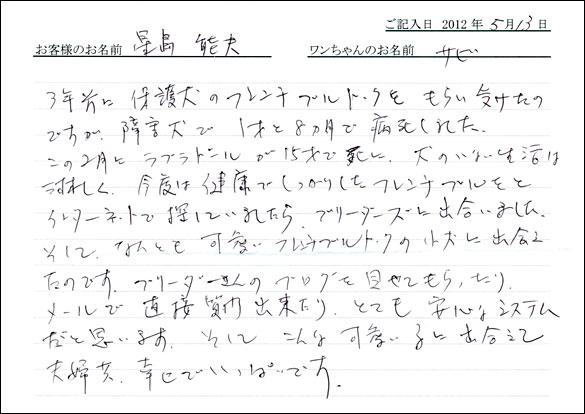 ご記入日 2012年5月13日
お客様のお名前 星島 能夫 ワンちゃんのお名前 サビ
3年前に保護犬のフレンチブルドックをもらい受けたの
ですが、障害犬で1才と8ヵ月で病死しました。
この2月にラブラドールが15才で死に、犬のいない生活は
淋しく、今度は健康でしっかりしたフレンチブルをと
インターネットで探していましたら、ブリーダーズに出合いました。
そして、なんとも可愛いフレンチブルドックの小犬に出会え
たのです。ブリーダーさんのブログを見せてもらったり、
メールで直接質問出来たり、とても安心なシステム
だと思います。そして こんな可愛い子に出合えて
夫婦共、幸せでいっぱいです。